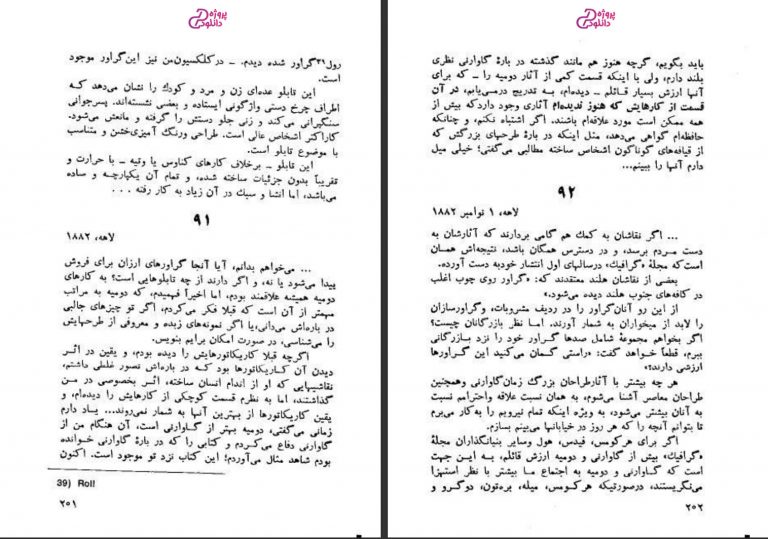 پروژه
دانلود
رول۳۹گراور شده دیدم. ــ درکلکسیون‌من نیز این‌گراور موجود
است.
این تابلو عده‌ای زن و مرد و کودك را نشان می‌دهد که
اطراف چرخ دستی واژگونی ایستاده و بعضی نشسته‌اند. پسرجوانی
سنگپرانی می‌کند و زنی جلو دستش را گرفته و مانعش می‌شود.
کاراکتر اشخاص عالی است. طراحی ورنگ آمیزی‌خشن و متناسب
با موضوع تابلو است.
این تابلو ــ برخلاف کارهای کناوس یا وتیه ــ با حرارت و
تقریباً بدون جزئیات ساخته شده، و تمام آن یکپارچه و ساده
می‌باشد، اما انشا و سبك در آن زیاد به کار رفته . . .
۹۱
لاهه، ۱۸۸۲
... می‌خواهم بدانم، آیا آنجا گراورهای ارزان برای فروش
پیدا می‌شود یا نه، و اگر دارند از چه تابلوهایی است؟ به کارهای
دومیه همیشه علاقمند بودم، اما اخیراً فهمیدم، که دومیه به مراتب
مهمتر از آن است که قبلا فکر می‌کردم، اگر تو چیزهای جالبی
در باره‌اش می‌دانی،یا اگر نمونه‌های زبده و معروفی از طرحهایش
را می‌شناسی، در صورت امکان برایم بنویس.
اگرچه قبلا کاریکاتورهایش را دیده بودم، و یقین در اثر
دیدن آن کاریکاتورها بود که در باره‌اش تصور غلطی داشتم،
نقاشیهایی که او از اندام انسان ساخته، اثر بخصوصی در من
گذاشتند، اما به نظرم قسمت کوچکی از کارهایش را دیده‌ام، و
یقین کاریکاتورها از بهترین آنها به شمار نمی‌روند... یاد دارم
زمانی می‌گفتی، دومیه بهتر از گاوارنی است، آن هنگام من از
گاوارنی دفاع می‌کردم و کتابی را که در بارۀ گاوارنی خوانده
بودم شاهد مثال می‌آوردم؛ این کتاب نزد تو موجود است. اکنون
39) Roll
۲۰۱
پروژه
دانلود
باید بگویم، گرچه هنوز هم مانند گذشته در بارۀ گاوارنی نظری
بلند دارم، ولی با اینکه قسمت کمی از آثار دومیه را ــ که برای
آنها ارزش بسیار قائلم ــ دیده‌ام، به تدریج درمی‌یابم، در آن
قسمت از کارهایش که هنوز ندیده‌ام آثاری وجود دارد که بیش از
همه ممکن است مورد علاقه‌ام باشند. اگر اشتباه نکنم، و چنانکه
حافظه‌ام گواهی می‌دهد، مثل اینکه در بارۀ طرحهای بزرگش که
از قیافه‌های گوناگون اشخاص ساخته مطالبی می‌گفتی؛ خیلی میل
دارم آنها را ببینم...
۹۲
لاهه، ۱ نوامبر ۱۸۸۲
... اگر نقاشان به کمك هم گامی بردارند که آثارشان به
دست مردم برسد، و در دسترس همگان باشد، نتیجه‌اش همان
است‌که مجلۀ «گرافیك» درسالهای اول انتشار خودبه دست آورده.
بعضی از نقاشان هلند معتقدند که: «گراور روی چوب اغلب
در کافه‌های جنوب هلند دیده می‌شود.»
از این رو آنان‌گراور را در ردیف مشروبات، وگراورسازان
را لابد از میخواران به شمار آورند. اما نظر بازرگانان چیست؟
اگر بخواهم مجموعۀ شامل صدها گراور خود را نزد بازرگانی
ببرم، قطعاً خواهد گفت: «راستی گمان می‌کنید این گراورها
ارزشی دارند؟»
هر چه بیشتر با آثارطراحان بزرگ زمان‌گاوارنی وهمچنین
طراحان معاصر آشنا می‌شوم، به همان نسبت علاقه واحترامم نسبت
به آنان بیشتر می‌شود، به ویژه اینکه تمام نیرویم را به‌کار می‌برم
تا بتوانم آنچه را که هر روز در خیابانها می‌بینم بسازم.
اگر برای هرکومس، فیدس، هول وسایر بنیانگذاران مجلۀ
«گرافیك»، بیش از گاوارنی و دومیه ارزش قائلم، به این جهت
است که گاوارنی و دومیه به اجتماع ما بیشتر با نظر استهزا
می‌نگریستند، درصورتیکه هرکومس، میله، بره‌تون، دوگرو و
۲۰۲